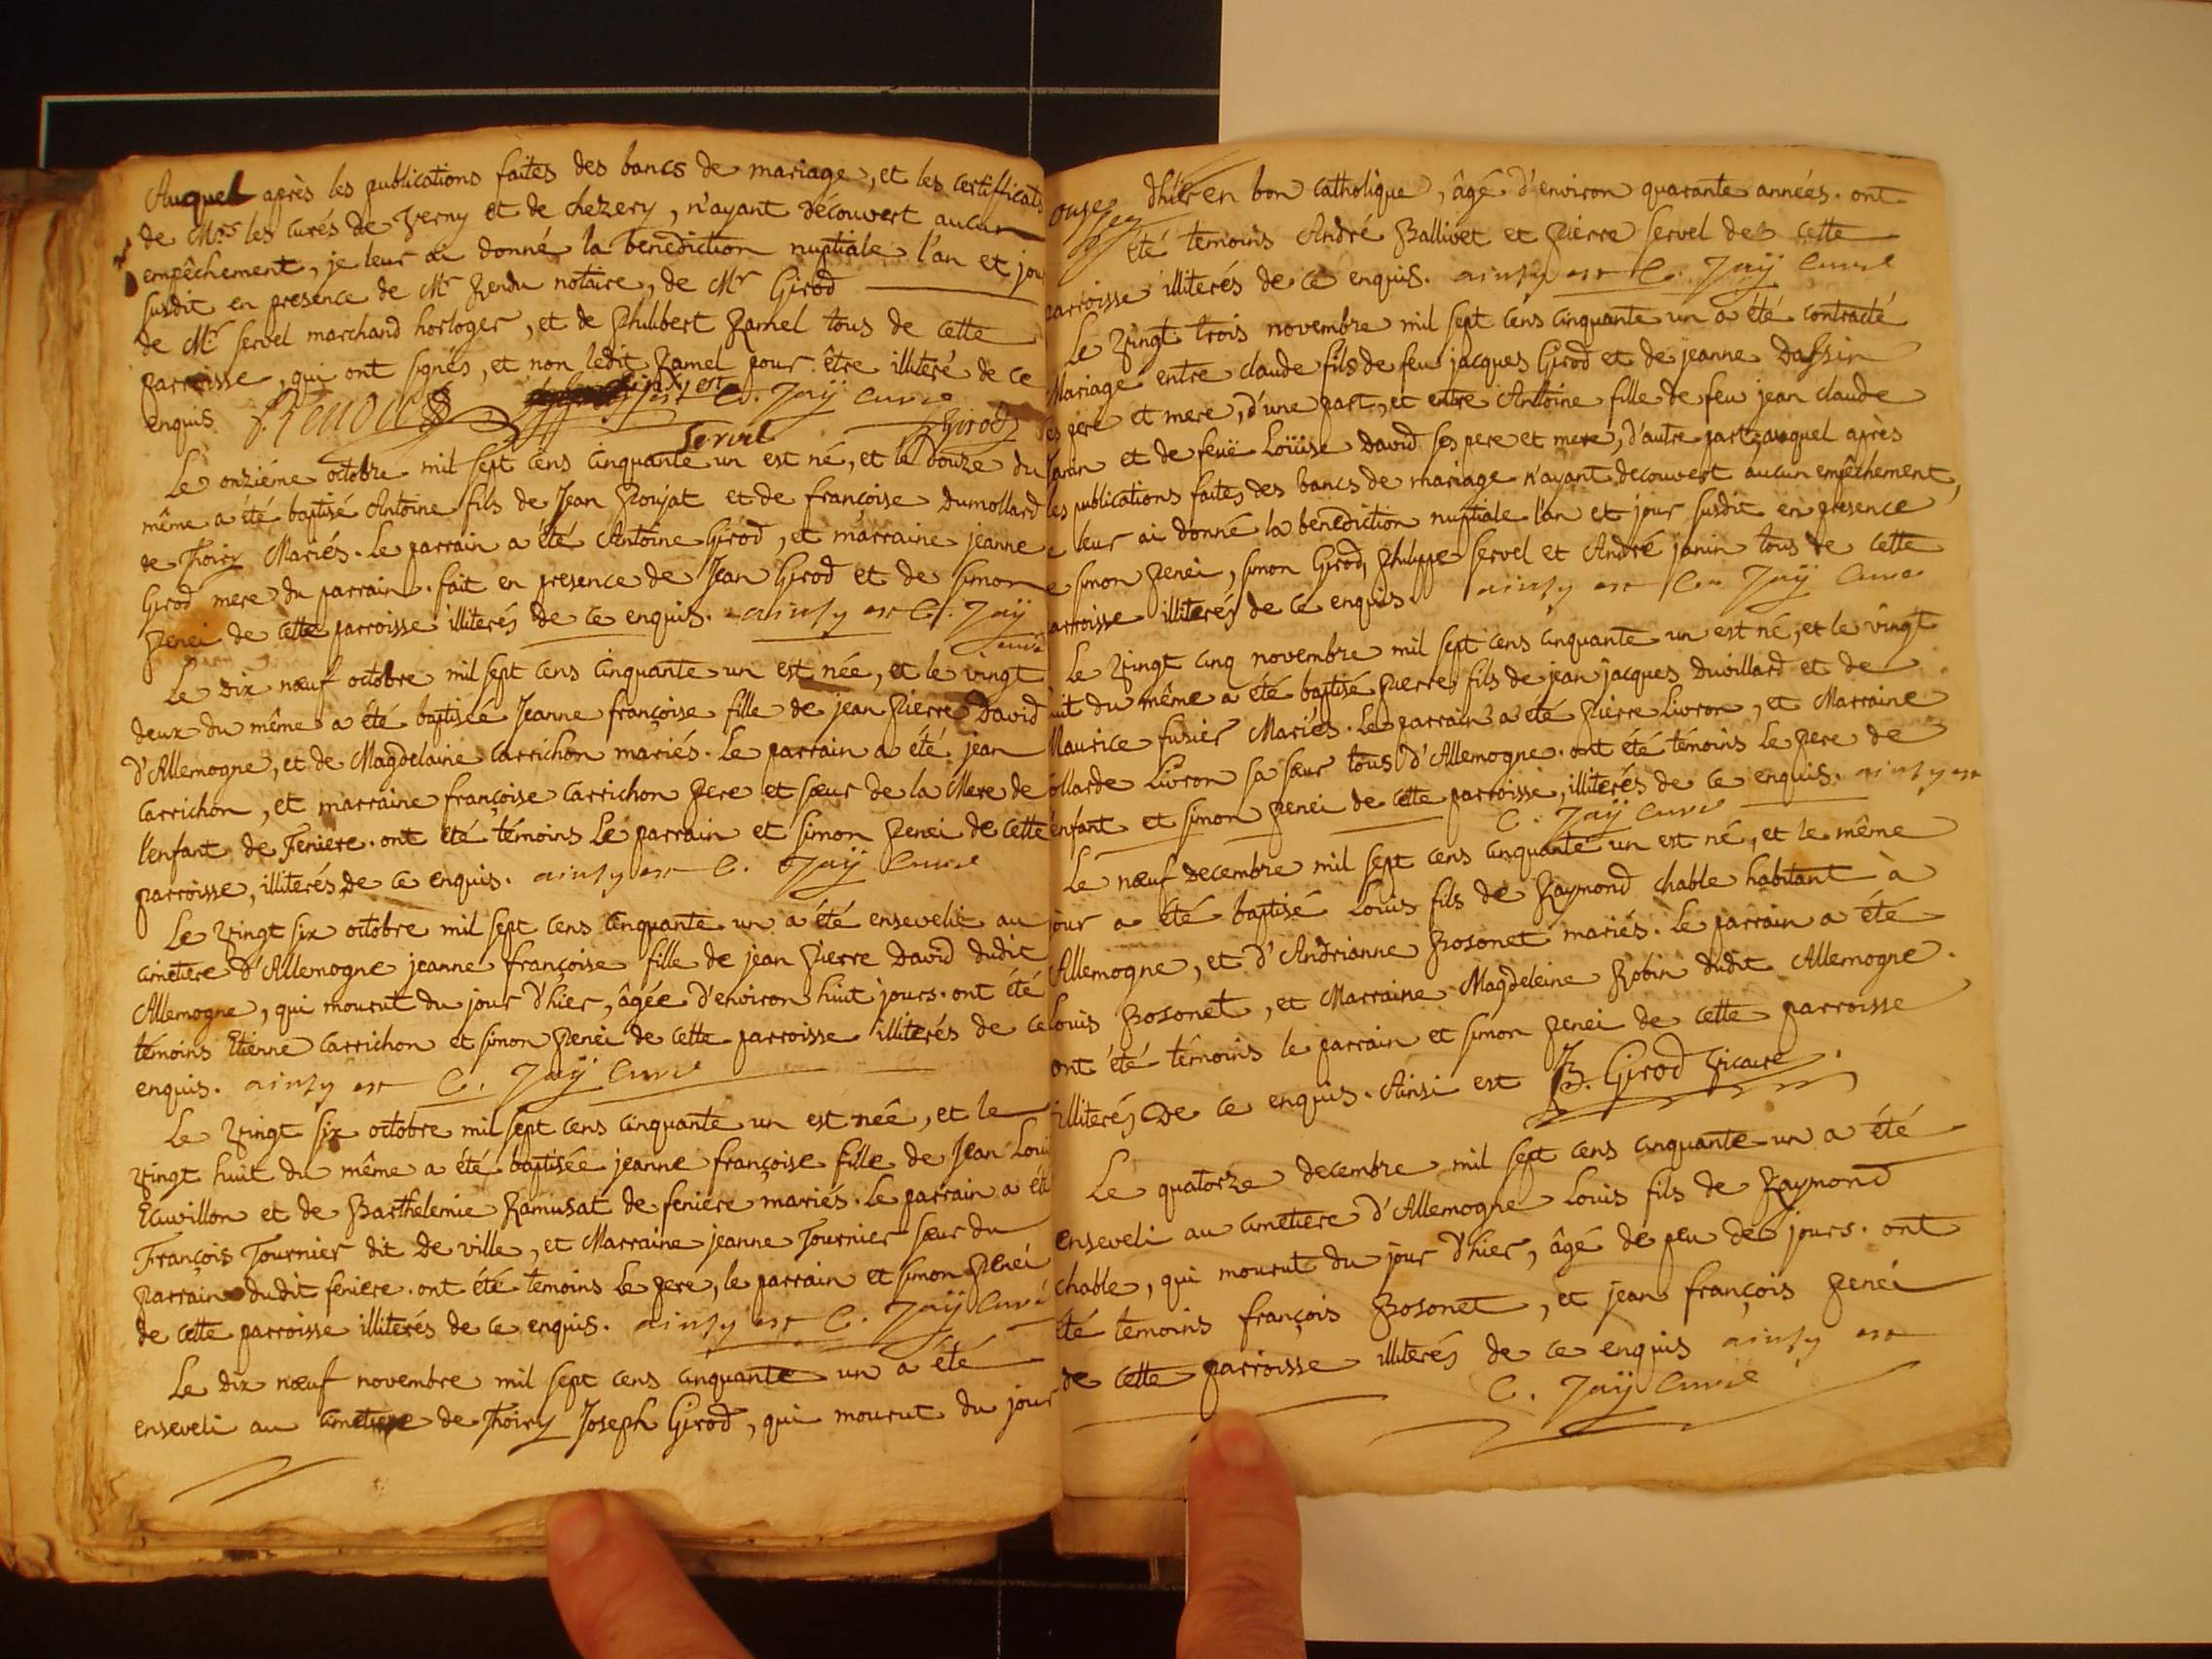 Auquel après les publications faites des bancs de mariage, et les certifficats
de Mrs les curés de Verny et de chezery, n'ayant découvert aucun
empêchement, je leur ai donné la benediction nuptiale l'an et jour
susdit en presence de Mr Rendu notaire, de Mr Girod
de Mr servel marchand horloger, et de Philibert Ramel tous de cette
parroisse, qui ont signés, et non ledit Ramel pour être illiteré de ce
enquis. Rendu est C. Jaÿ Curé
Servel Girod
Le onziéme octobre mil sept cens cinquante un est né, et le douze du
même a été baptisé Antoine fils de Jean Poujat et de françoise Dumollard
de Thoiry Mariés. Le parrain a été Antoine Girod, et marraine jeanne
Girod mere du parrain. fait en presence de Jean Girod et de simon
Penei de cette parroisse illiterés de ce enquis. ainsy est C. Jaÿ
Curé
Le dix nœuf octobre mil sept cens cinquante un est née, et le vingt
deux du même a été baptisée Jeanne françoise fille de jean Pierre David
d'Allemogne, et de Magdelaine Carrichon mariés. Le parrain a été jean
Carrichon, et marraine françoise Carrichon Pere et sœur de la Mere de
l'enfant de Feniere. ont été témoins Le parrain et simon Penei de cette
parroisse, illiterés de ce enquis. ainsy est C. Jaÿ Curé
Le Vingt six octobre mil sept cens cinquante un a été ensevelie au
cimetiere d'Allemogne jeanne françoise fille de jean Pierre David dudit
Allemogne, qui mourut du jour d'hier, âgée d'environ huit jours. ont été
témoins Etienne Carrichon et simon Penei de cette parroisse illiterés de ce
enquis. ainsy est C. Jaÿ Curé
Le Vingt six octobre mil sept cens cinquante un est née, et le
Vingt huit du même a été baptisée jeanne françoise fille de Jean Loui
Ecuvillon et de Barthelemie Ramusat de feniere mariés. Le parrain a été
François Tournier dit De ville, et Marraine jeanne Tournier sœur du
Parrain dudit feniere. ont été temoins Le Pere, le parrain et simon Penei
de cette parroisse illiterés de ce enquis. ainsy est C. Jaÿ Curé
Le dix nœuf novembre mil sept cens cinquante un a été
enseveli au cimetiere de Thoiry Joseph Girod, qui mourut du jour
d'hier en bon catholique, âgé d'environ quarante années. ont
été temoins André Ballivet et Pierre servel de cette
parroisse illiterés de ce enquis. ainsy est C. Jaÿ Curé
Le Vingt trois novembre mil sept cens cinquante un a été contracté
Mariage entre claude fils de feu jacques Girod et de jeanne Dassin
es pere et mere, d'une part, et entre Antoine fille de feu jean claude
Janin et de feuë Loüise David ses pere et mere, d'autre part; auquel après
les publications faites des bancs de mariage n'ayant decouvert aucun empêchement,
e leur ai donné la benediction nuptiale l'an et jour susdit en presence
e simon Penei, simon Girod, Philippe servel et André janin tous de cette
arroisse illiterés de ce enquis. ainsy est C. Jaÿ Curé
Le Vingt cinq novembre mil sept cens cinquante un est né, et le vingt
uit du même a été baptisé Pierre fils de jean jacques Duvillard et de
Maurice fusier Mariés. Le parrain a été Pierre Livron, et Marraine
ollarde Livron sa sœur tous d'Allemogne. ont été témoins Le Pere de
enfant et simon Penei de cette parroisse, illiterés de ce enquis. ainsy est
C. Jaÿ Curé
Le nœuf Decembre mil sept cens cinquante un est né, et le même
jour a été baptisé Louis fils de Raymond chable habitant à
Allemogne, et d'Andrianne Bosonet mariés. Le parrain a été
Louis Bosonet, et Marraine Magdeleine Robin dudit Allemogne.
ont été témoins le parrain et simon Penei de cette parroisse
illiterés De ce enquis. Ainsi est B. Girod Vicaire.
Le quatorze decembre mil sept cens cinquante un a été
enseveli au cimetiere d'Allemogne Louis fils de Raymond
chable, qui mourut du jour d'hier, âgé de peu de jours. ont
été temoins françois Bosonet, et jean françois Penei
de cette parroisse illiterés de ce enquis ainsy est
C. Jaÿ Curé